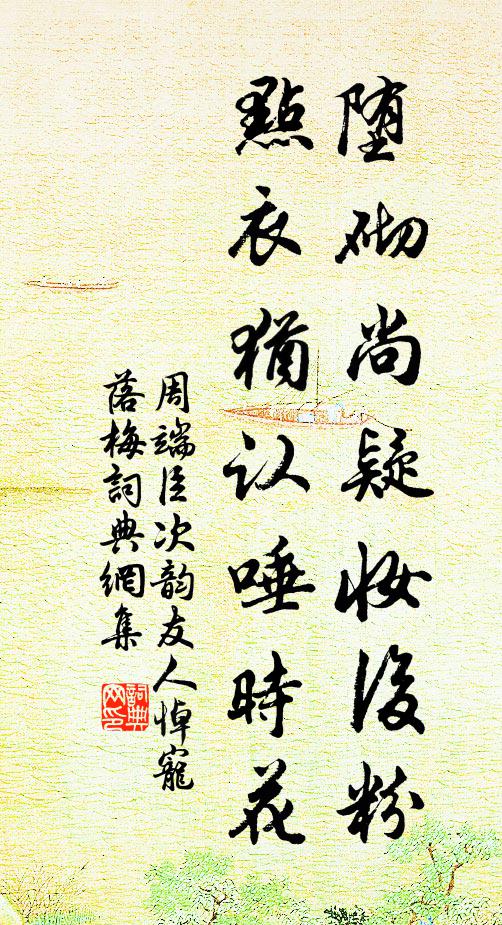 堕砌尚疑妆後粉
點衣猶认唾時花
周端臣次韵友人悼寵
落梅詞典網集
詞典网印